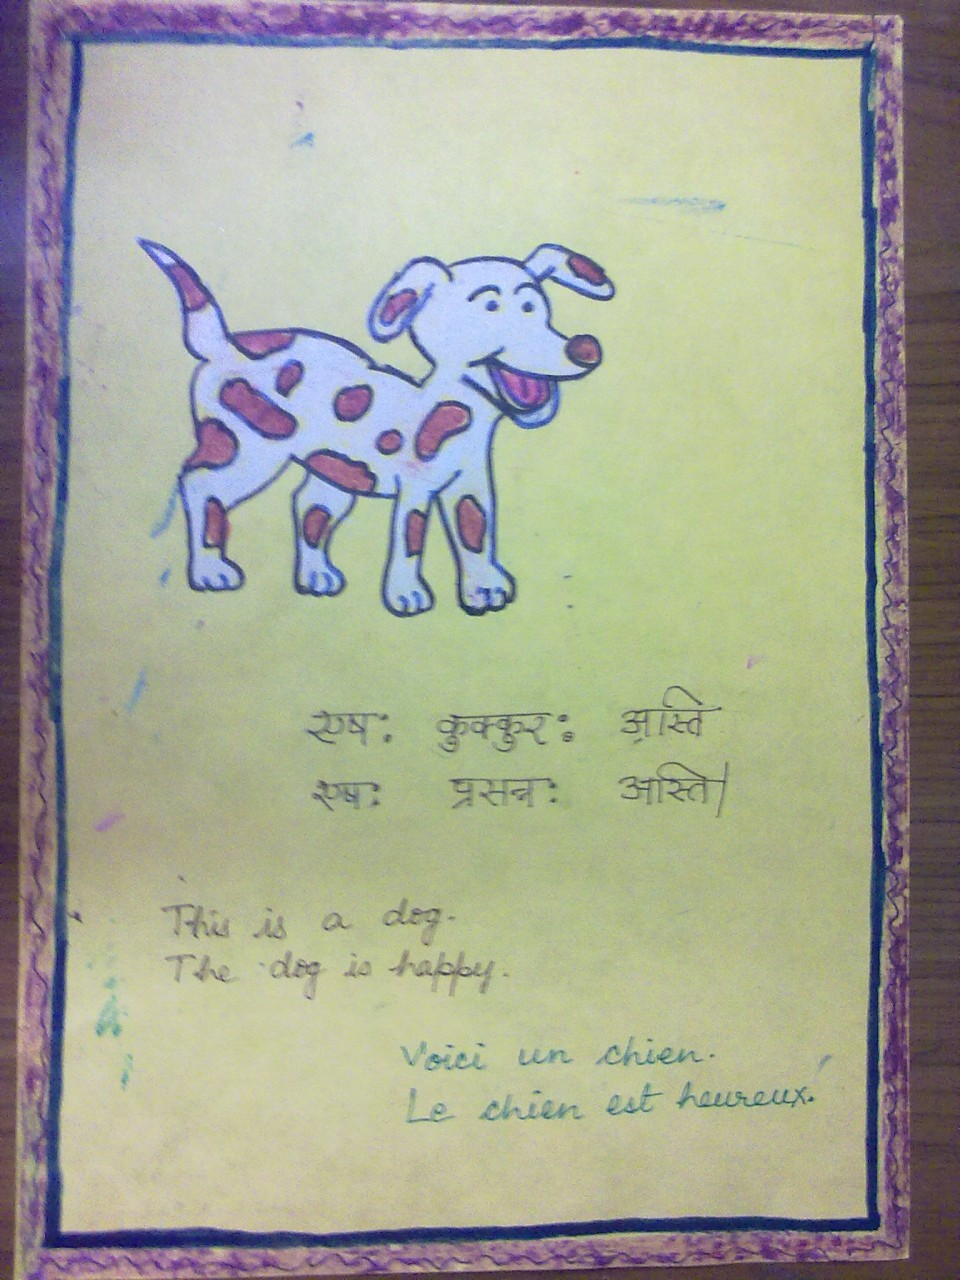 एषः कुक्कुरः अस्ति
एषः प्रसन्नः अस्ति।
This is a dog.
The dog is happy.
Voici un chien.
Le chien est heureux.